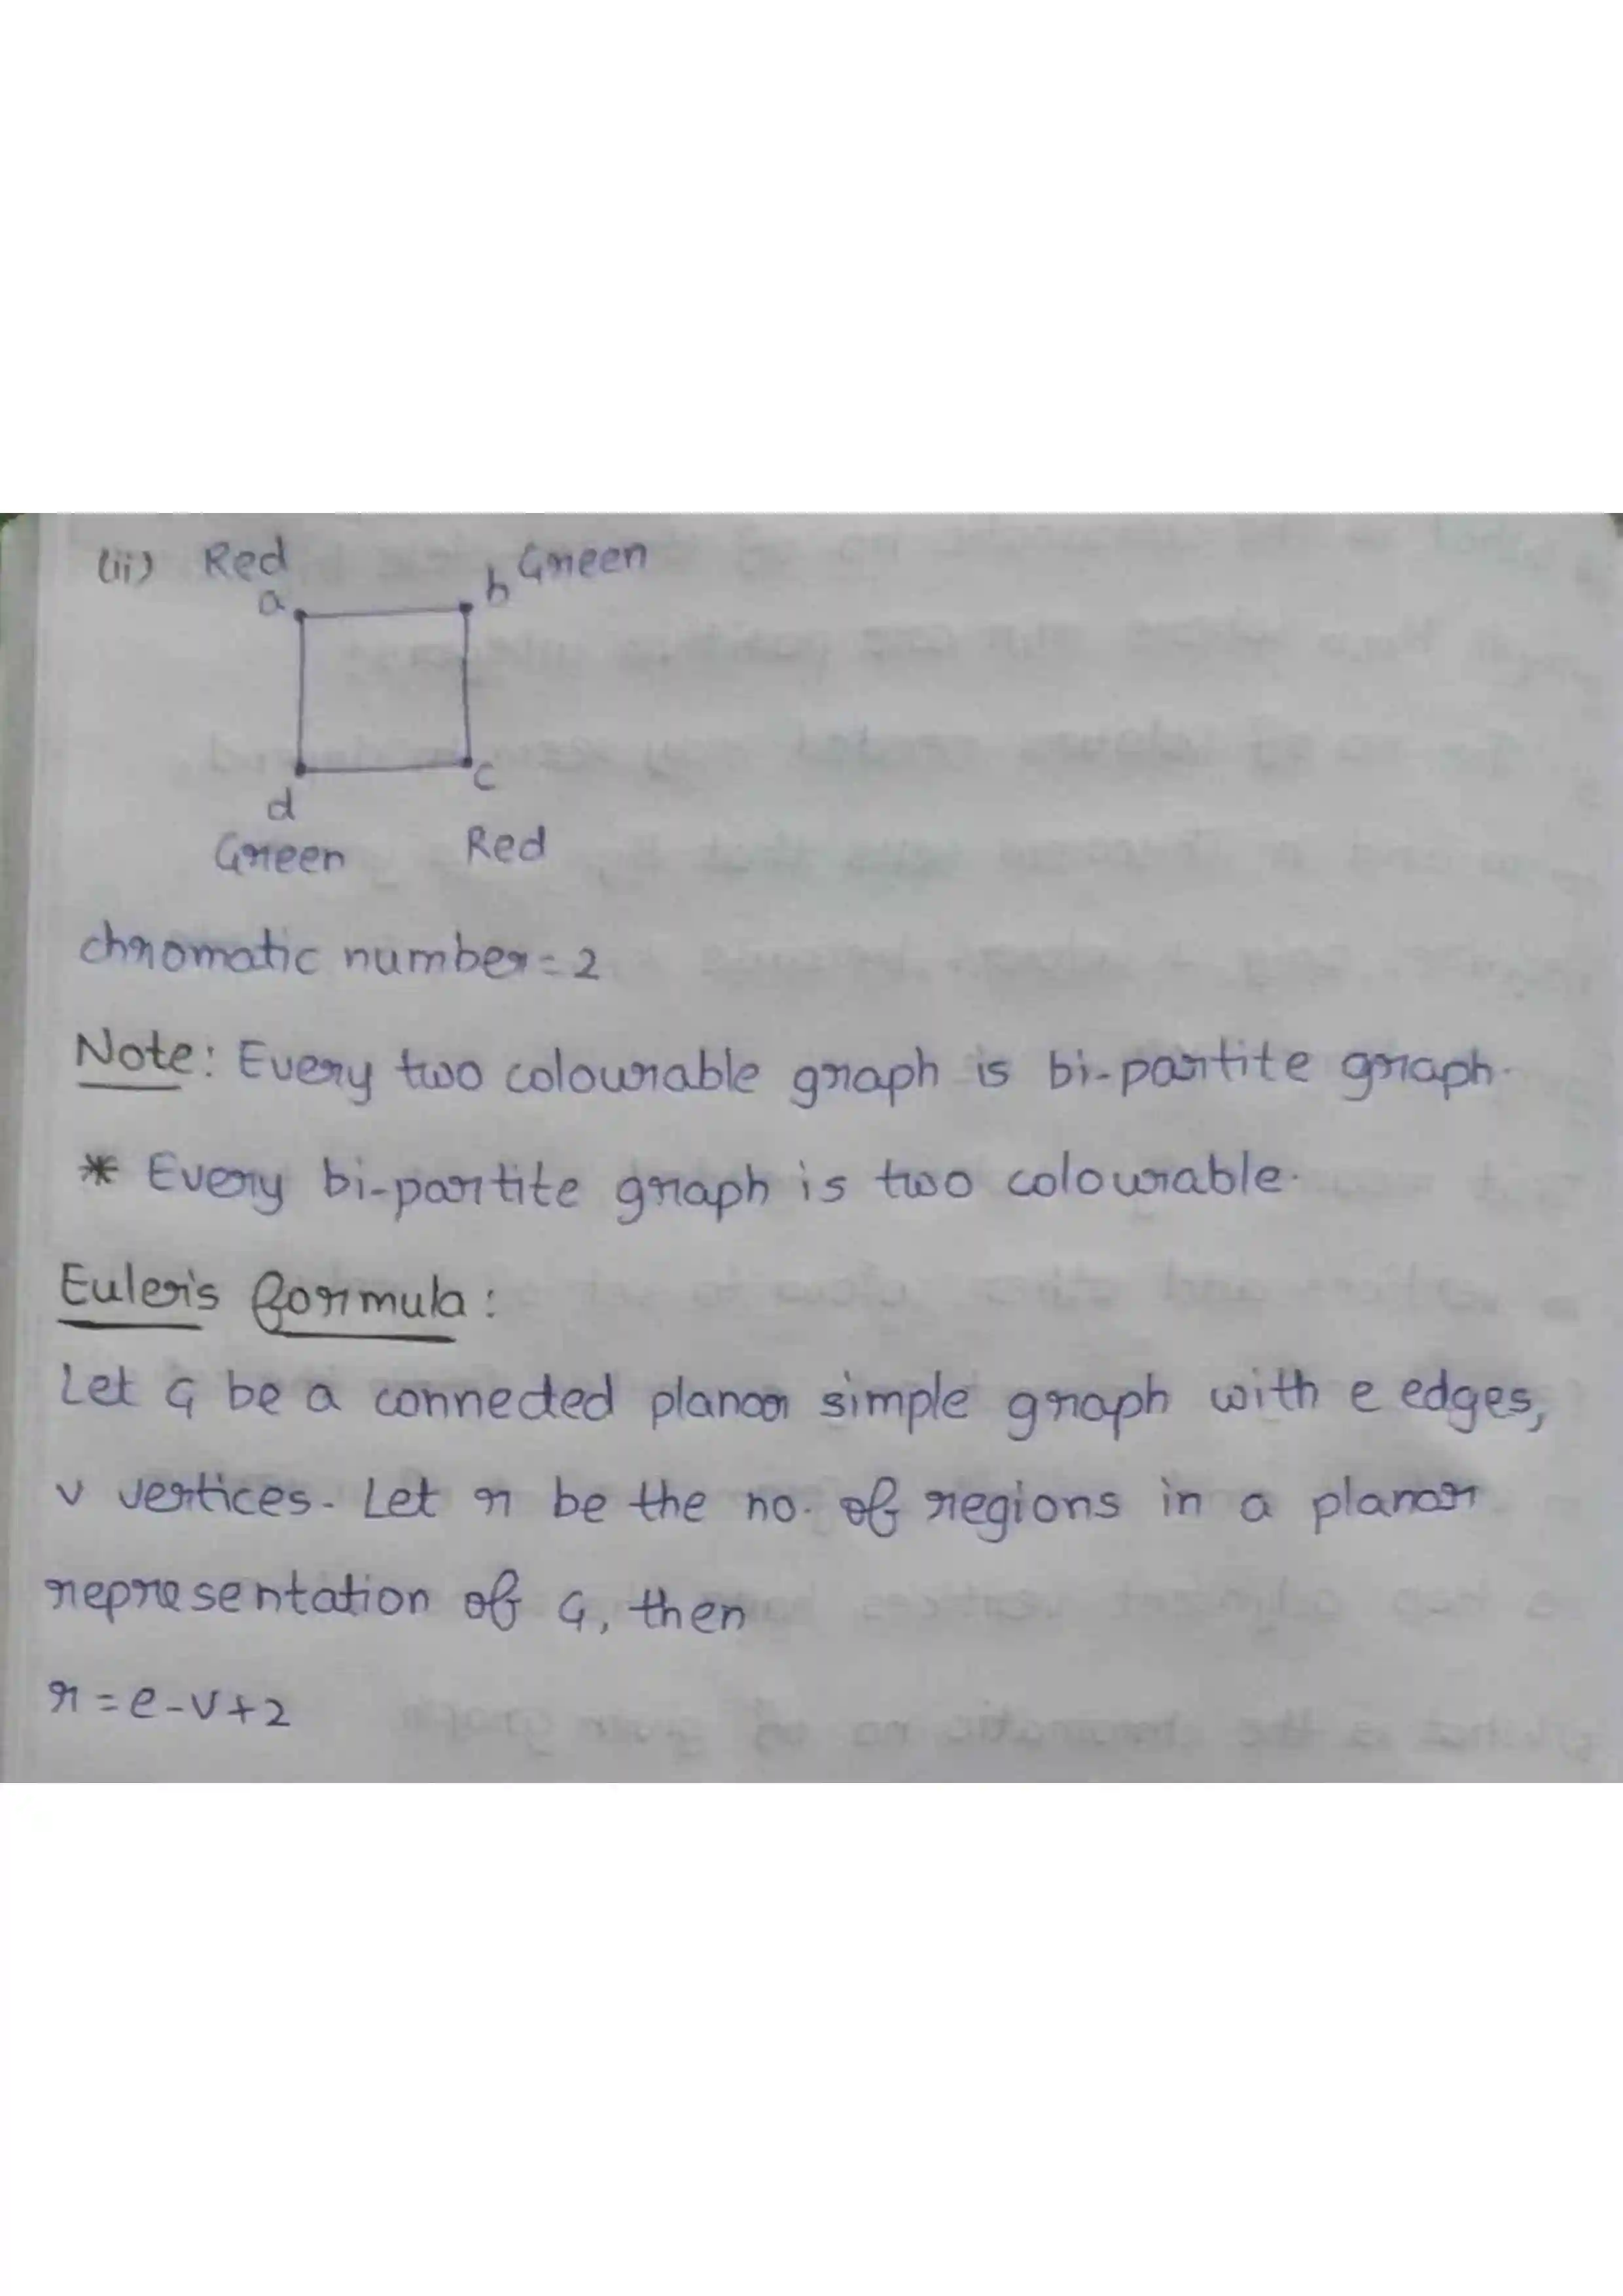 (ii) Red
b Green
a
c
d
Green Red
chromatic number = 2
Note: Every two colourable graph is bi-partite graph.
* Every bi-partite graph is two colourable.
Euler's formula:
Let G be a connected planar simple graph with e edges,
v vertices. Let r be the no. of regions in a planar
representation of G, then
r = e-v+2